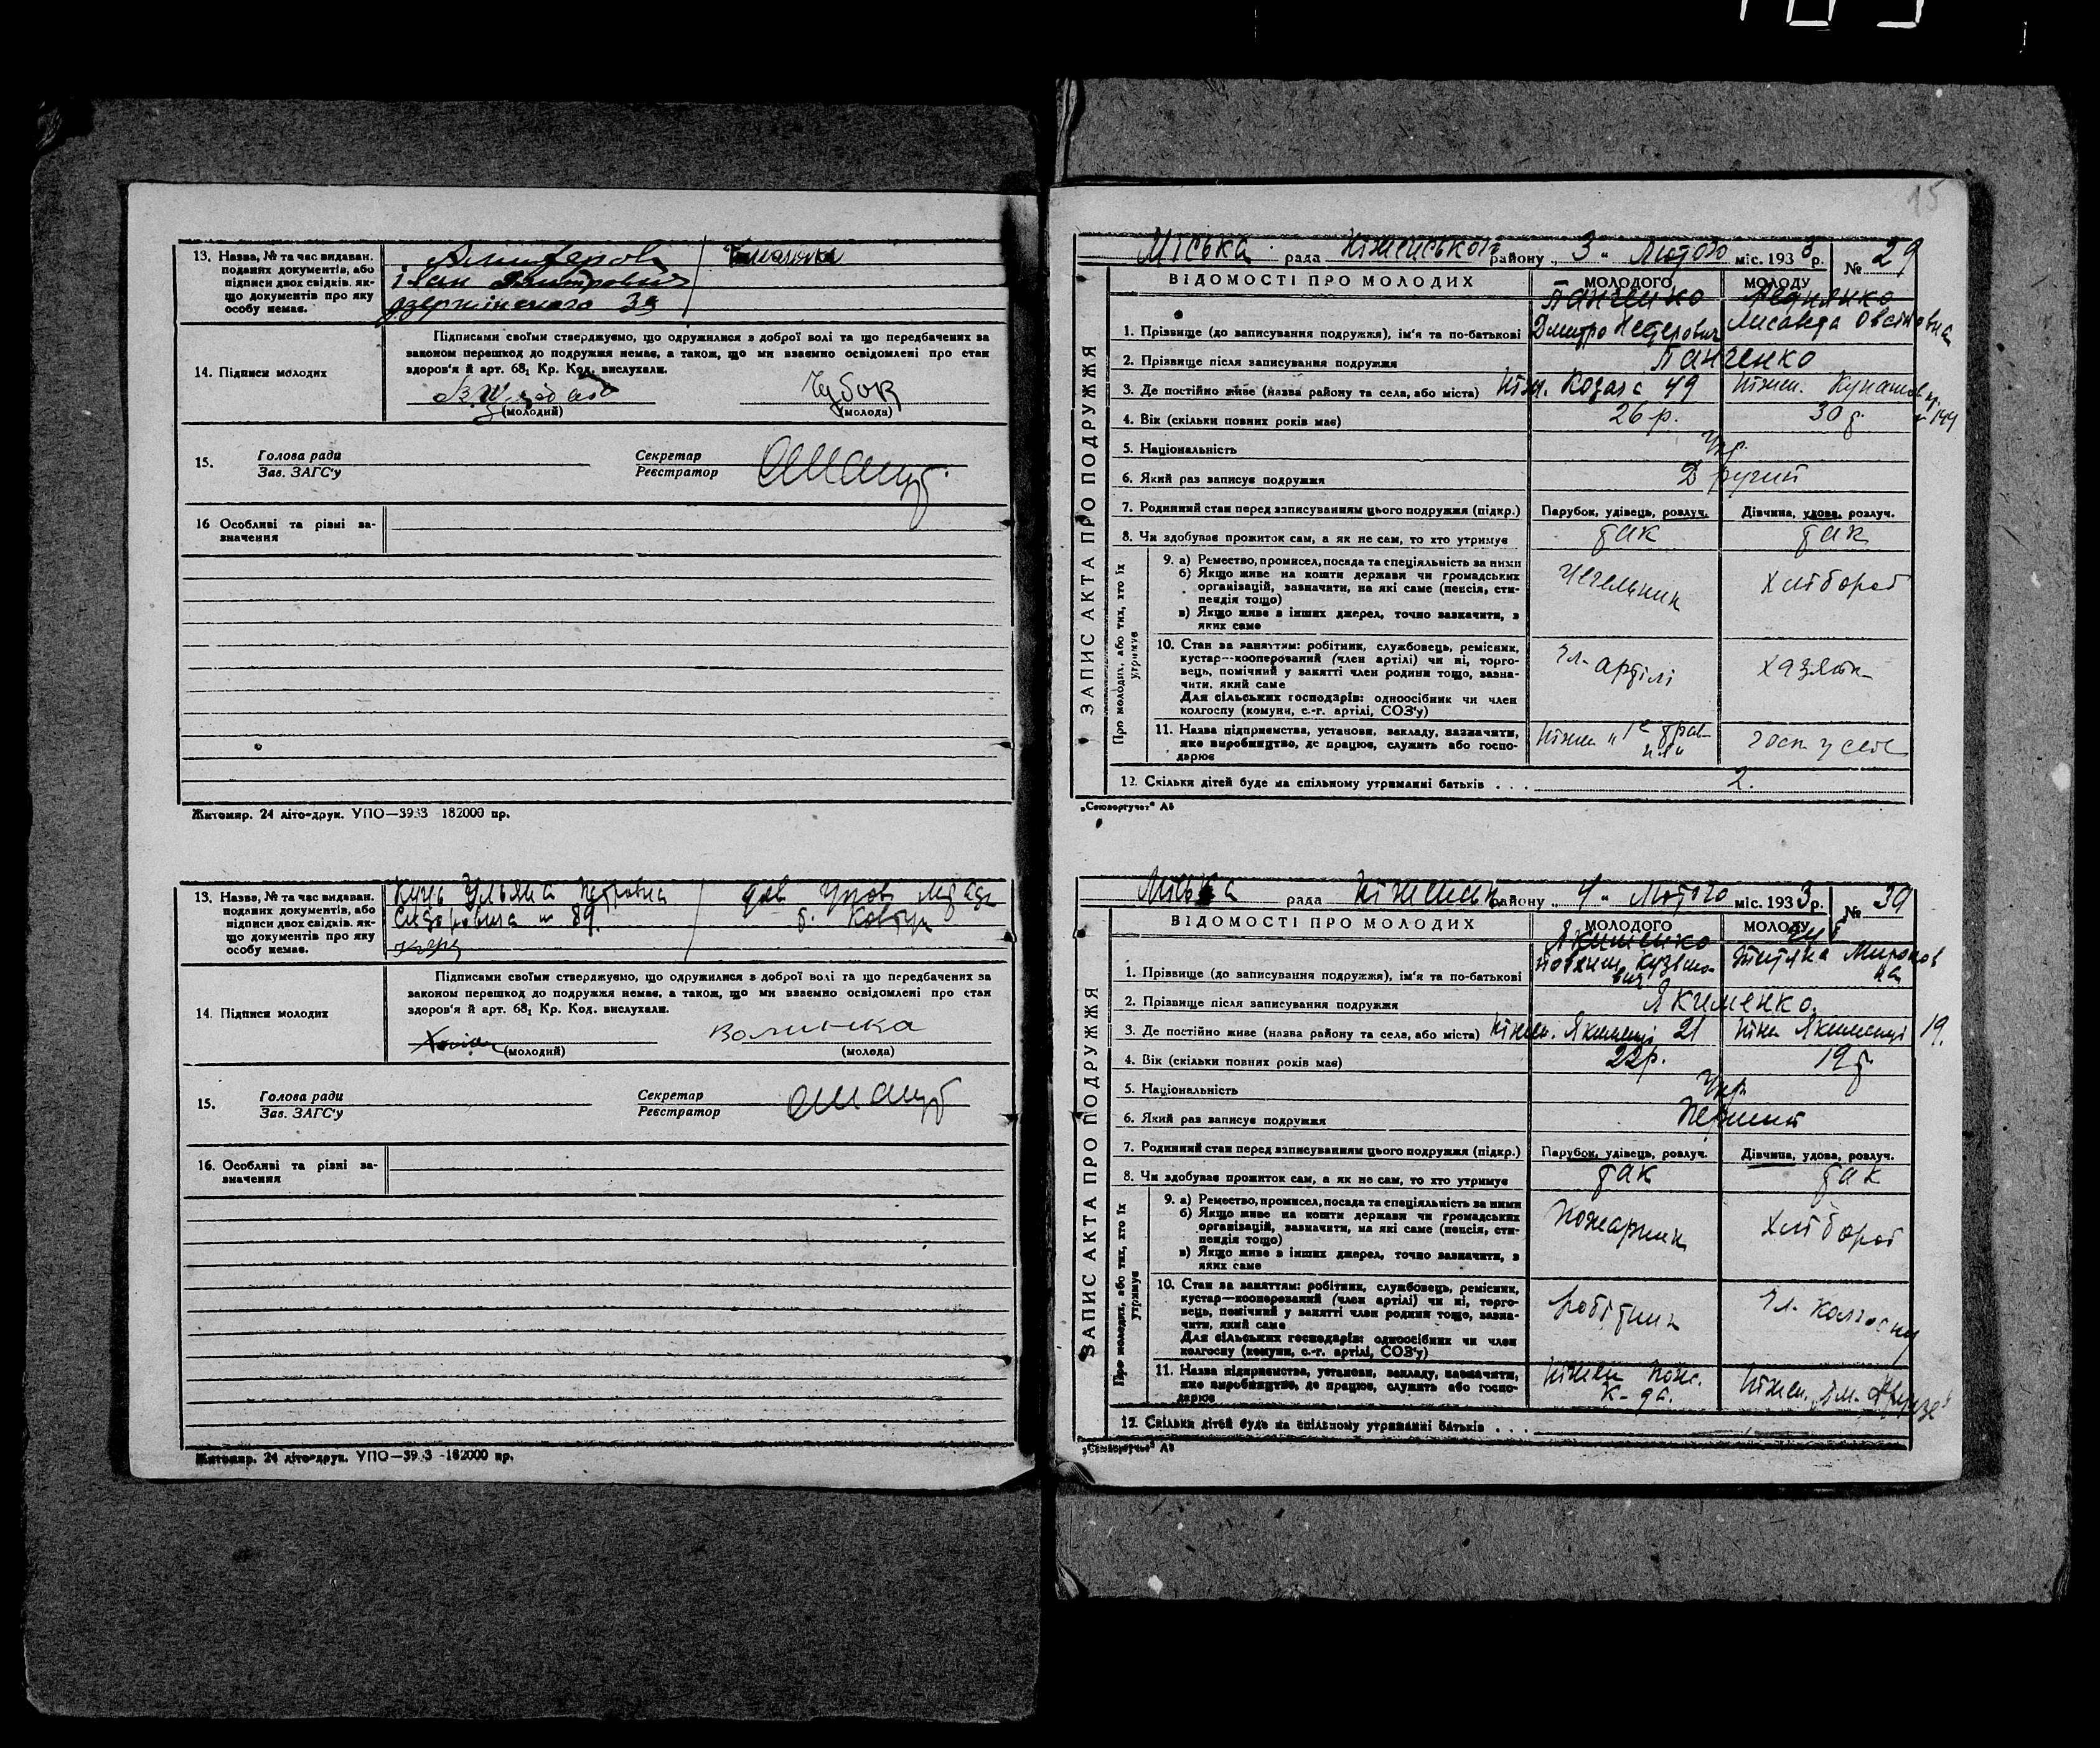 13. Назва, № та час видаван.
поданих документів, або
підписи двох свідків, як-
що документів про яку
особу немає.
Алиферов
Іван Дмитрович
Дзержінського 39
14. Підписи молодих
Підписами своїми стверджуємо, що одружилися з доброї волі та що передбачених за
законом перешкод до подружжя немає, а також, що ми взаємно освідомлені про стан
здоров'я й арт. 68₁ Кр. Код. вислухали.
Чубок
(молодий) (молода)
15. Голова ради Секретар
Зав. ЗАГС'у Реєстратор
16 Особливі та різні за-
значення
Житомир. 24 літо-друк. УПО—3933 182000 пр.
13. Назва, № та час видаван.
поданих документів, або
підписи двох свідків, як-
що документів про яку
особу немає.
Куць Ульяна Петровна
89.
14. Підписи молодих
Підписами своїми стверджуємо, що одружилися з доброї волі та що передбачених за
законом перешкод до подружжя немає, а також, що ми взаємно освідомлені про стан
здоров'я й арт. 68₁ Кр. Код. вислухали.
Волинка
(молодий) (молода)
15. Голова ради Секретар
Зав. ЗАГС'у Реєстратор
16. Особливі та різні за-
значення
Житомир. 24 літо-друк. УПО—39 3 -182000 пр.
15
ЗАПИС АКТА ПРО ПОДРУЖЖЯ
Міська рада Ніженського району „ 3 " Лютого міс. 1933 р. № 29
ВІДОМОСТІ ПРО МОЛОДИХ МОЛОДОГО МОЛОДУ
Панченко
1. Прізвище (до записування подружжя), ім'я та по-батькові Дмитро
2. Прізвище після записування подружжя Панченко
3. Де постійно живе (назва району та села, або міста) Ніж. Козача 49 Ніжен.
4. Вік (скільки повних років має) 26 р. 30 р.
5. Національність Укр.
6. Який раз записує подружжя Другий
7. Родинний стан перед записуванням цього подружжя (підкр.) Парубок, удівець, розлуч. Дівчина, удова, розлуч.
8. Чи здобуває прожиток сам, а як не сам, то хто утримує так так
Про молодих, або тих, хто їх утримує
9. а) Ремество, промисел, посада та спеціяльність за ними
б) Якщо живе на кошти держави чи громадських
організацій, зазначити, на які саме (пенсія, сти-
пендія тощо)
в) Якщо живе з інших джерел, точно зазначити, з
яких саме
Чегельник Хлібороб
10. Стан за заняттям: робітник, службовець, ремісник,
кустар—кооперований (член артілі) чи ні, торго-
вець, помічний у занятті член родини тощо, зазна-
чити, який саме
Для сільських господарів: одноосібник чи член
колгоспу (комуни, с.-г. артілі, СОЗ'у)
Чл. артілі хазяїн
11. Назва підприємства, установи, закладу, зазначити,
яке виробництво, де працює, служить або госпо-
дарює
12. Скільки дітей буде на спільному утриманні батьків . . . 2.
„Союзоргучет" А5
ЗАПИС АКТА ПРО ПОДРУЖЖЯ
Міська рада Ніженськ. району „ 4 " Лютого міс. 1933 р. № 30
ВІДОМОСТІ ПРО МОЛОДИХ МОЛОДОГО МОЛОДУ
Якименко
1. Прізвище (до записування подружжя), ім'я та по-батькові
2. Прізвище після записування подружжя Якименко.
3. Де постійно живе (назва району та села, або міста) Ніжен. Якименці 21 Ніжен Якименці 19.
4. Вік (скільки повних років має) 22 р. 19 р.
5. Національність Укр.
6. Який раз записує подружжя Перший
7. Родинний стан перед записуванням цього подружжя (підкр.) Парубок, удівець, розлуч. Дівчина, удова, розлуч.
8. Чи здобуває прожиток сам, а як не сам, то хто утримує так так
Про молодих, або тих, хто їх утримує
9. а) Ремество, промисел, посада та спеціяльність за ними
б) Якщо живе на кошти держави чи громадських
організацій, зазначити, на які саме (пенсія, сти-
пендія тощо)
в) Якщо живе з інших джерел, точно зазначити, з
яких саме
Пожарник Хлібороб
10. Стан за заняттям: робітник, службовець, ремісник,
кустар—кооперований (член артілі) чи ні, торго-
вець, помічний у занятті член родини тощо, зазна-
чити, який саме
Для сільських господарів: одноосібник чи член
колгоспу (комуни, с.-г. артілі, СОЗ'у)
робітник Чл. колгоспу
11. Назва підприємства, установи, закладу, зазначити,
яке виробництво, де працює, служить або госпо-
дарює
Ніжен пож. к-да. Ніжен. ім. Фрунзе
12. Скільки дітей буде на спільному утриманні батьків . . .
„Союзоргучет" А5